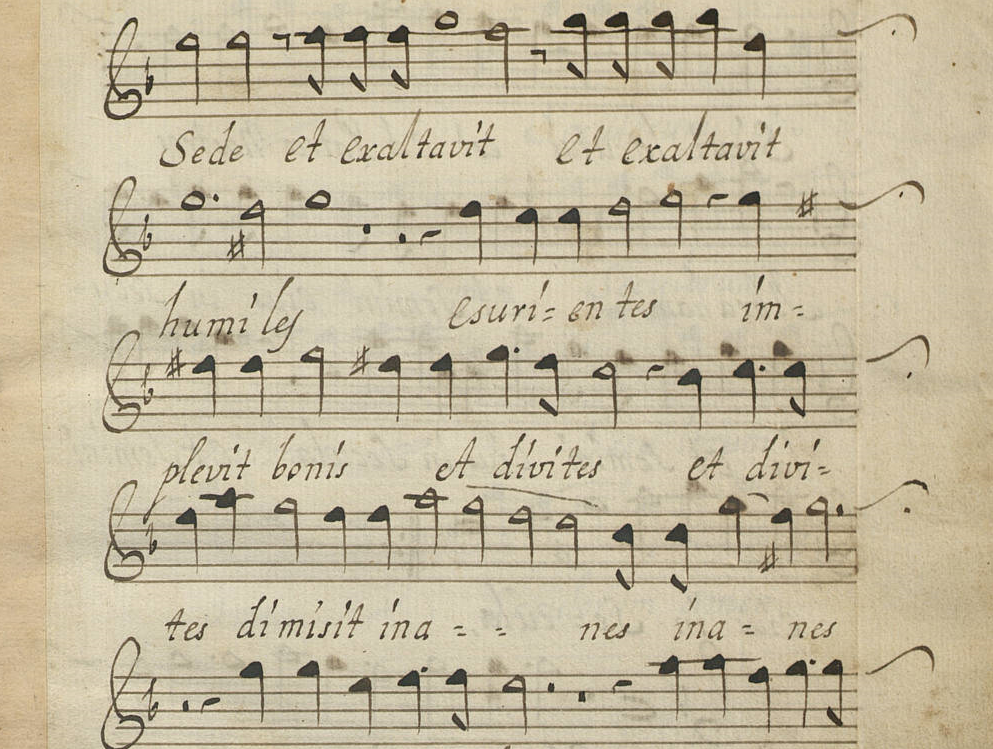 Sede et exaltavit et exaltavit
humiles esuri= en tes im=
plevit bonis et divites et divi=
tes dimisit ina = = nes ina = nes